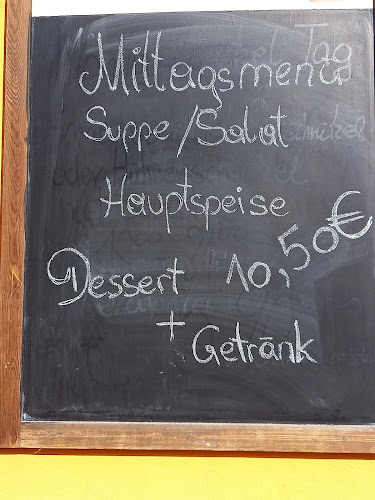 Mittagsmenü
Suppe/Salat
Hauptspeise
Dessert 10,50€
+ Getränk